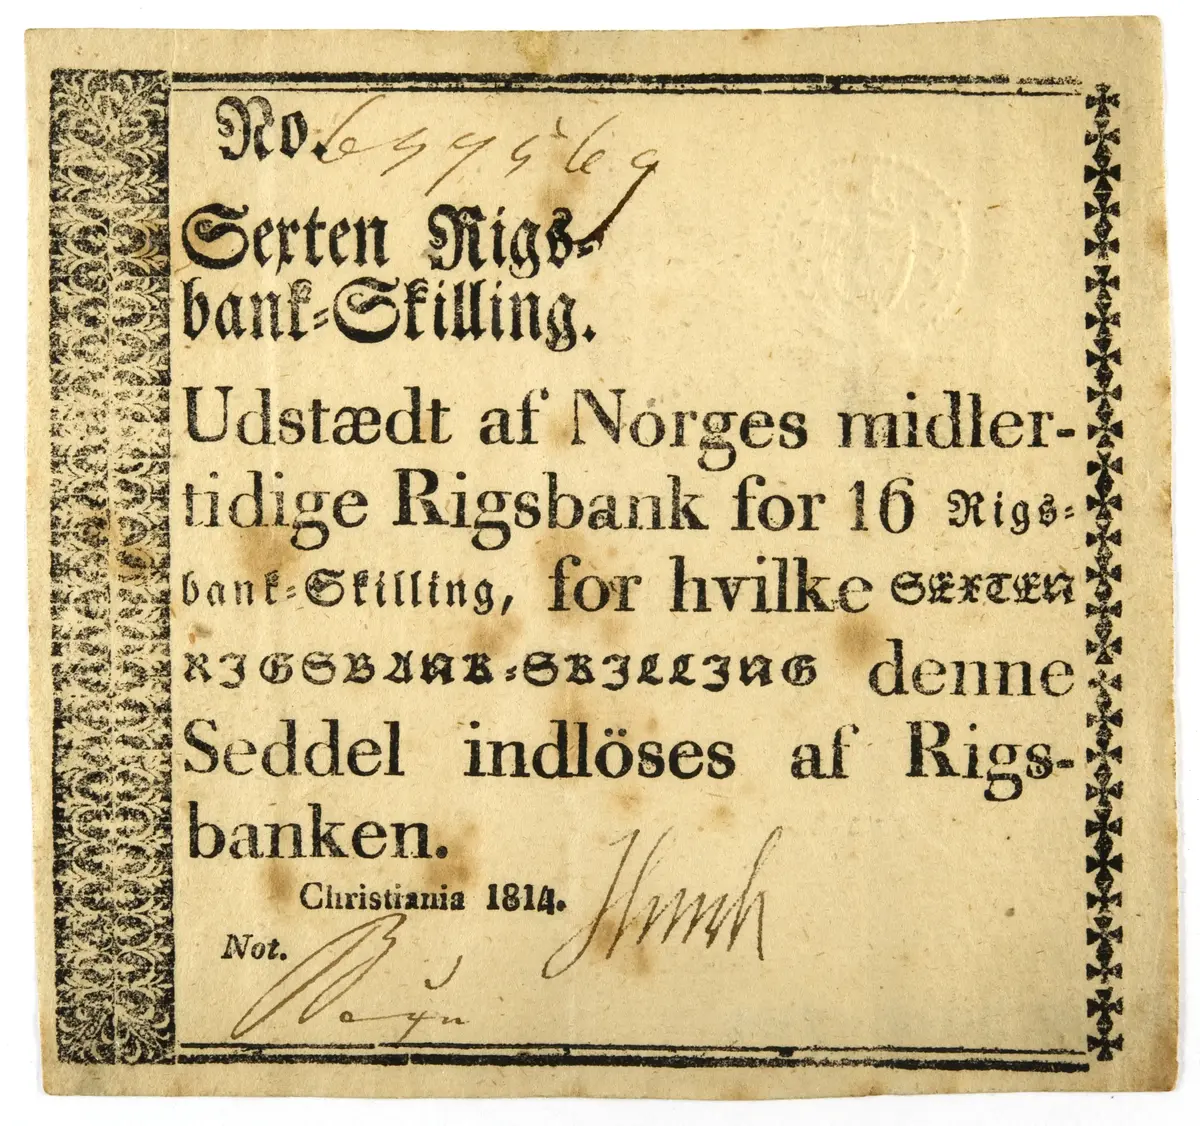 No. 697569
Sexten Rigs-
bank-Skilling.
Udstædt af Norges midler-
tidige Rigsbank for 16 Rigs-
bank-Skilling, for hvilke SEXTEN
RIGSBANK-SKILLING denne
Seddel indlöses af Rigs-
banken.
Christiania 1814.
Not.